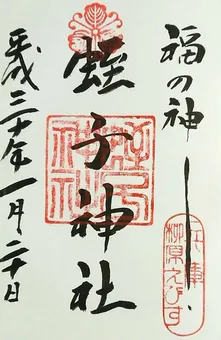 福の神
兵庫
柳原えびす
蛭子神社
平成三十年一月二十日